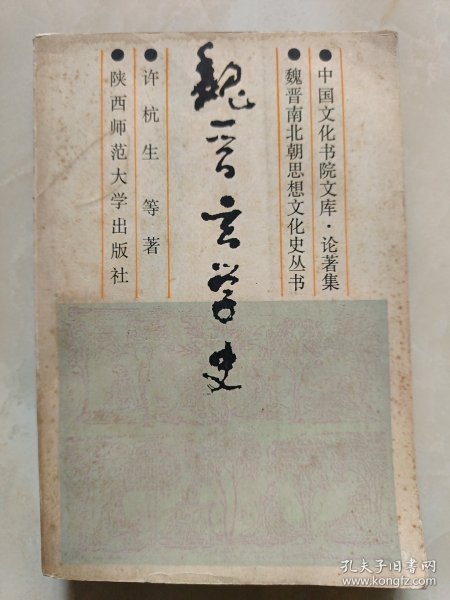 中国文化书院文库·论著集
魏晋南北朝思想文化史丛书
魏晋玄学史
许杭生 等著
陕西师范大学出版社
孔夫子旧书网
www.kongfz.com